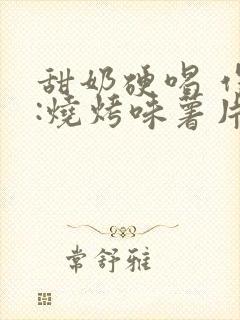 甜奶硬唱
:燒烤味薯片
常舒雅